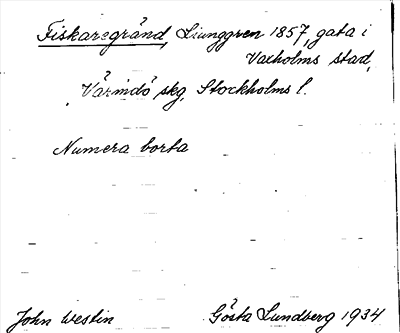 Fiskaregränd, Ljunggren 1857, gata i
Vaxholms stad,
Värmdö skg, Stockholms l.
Numera borta
John Westin Gösta Lundberg 1934